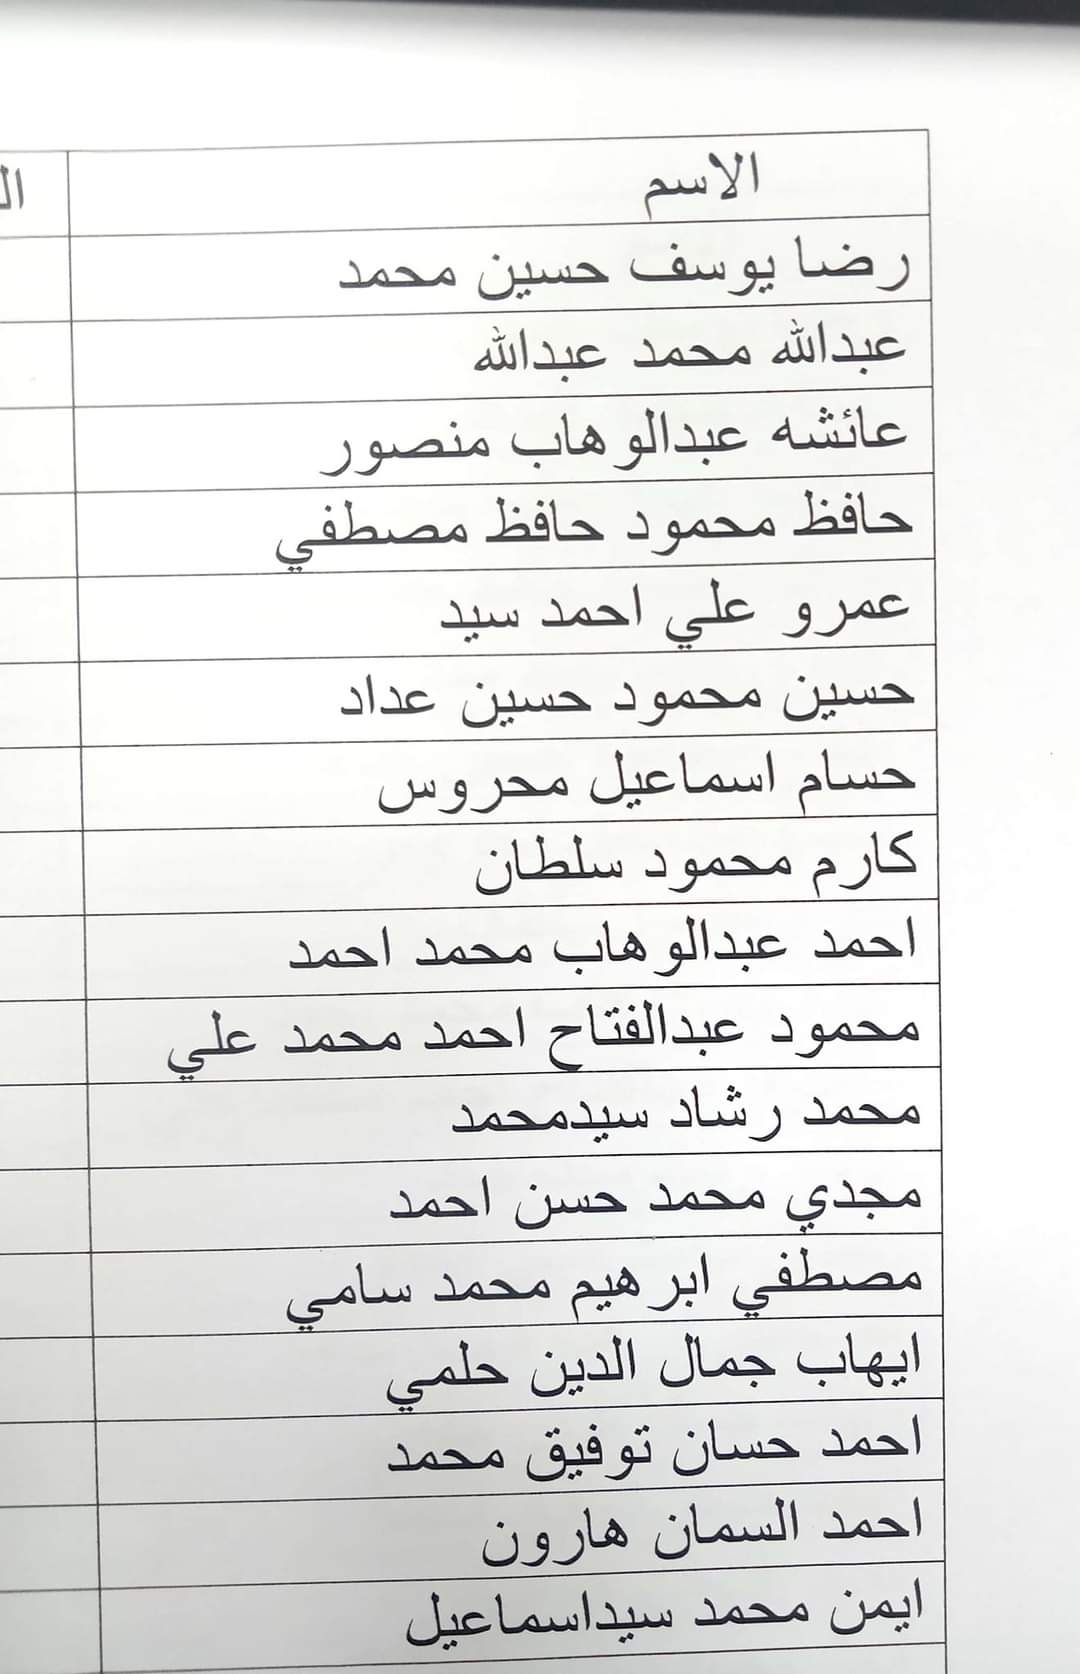 الاسم
رضا يوسف حسين محمد
عبدالله محمد عبدالله
عائشه عبدالوهاب منصور
حافظ محمود حافظ مصطفي
عمرو علي احمد سيد
حسين محمود حسين عداد
حسام اسماعيل محروس
كارم محمود سلطان
احمد عبدالوهاب محمد احمد
محمود عبدالفتاح احمد محمد علي
محمد رشاد سيدمحمد
مجدي محمد حسن احمد
مصطفي ابرهيم محمد سامي
ايهاب جمال الدين حلمي
احمد حسان توفيق محمد
احمد السمان هارون
ايمن محمد سيداسماعيل